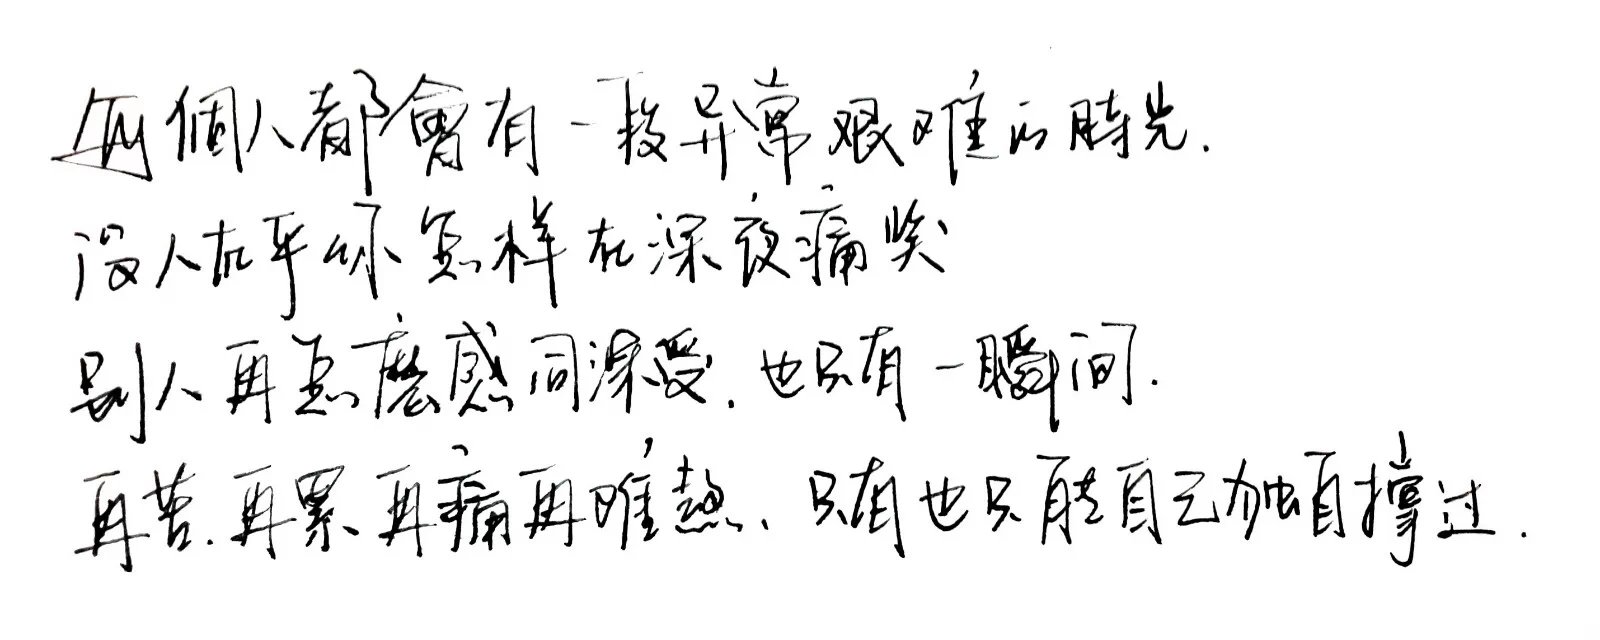 每個人都會有一段异常艰难的時光.
没人在乎你怎样在深夜痛哭
别人再怎麽感同深受.也只有一瞬间.
再苦.再累再痛再难熬、只有也只能自己独自撐过.